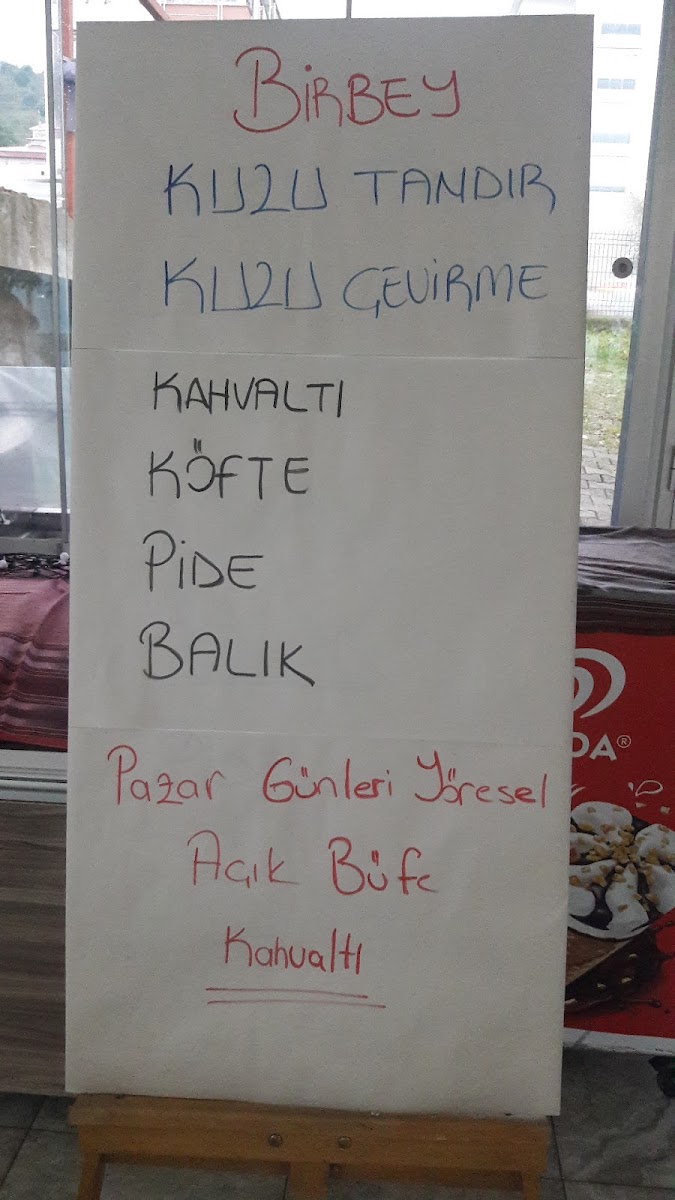 BİRBEY
KUZU TANDIR
KUZU ÇEVİRME
KAHVALTI
KÖFTE
PİDE
BALIK
Pazar Günleri Yöresel
Açık Büfe
Kahvaltı
DA®